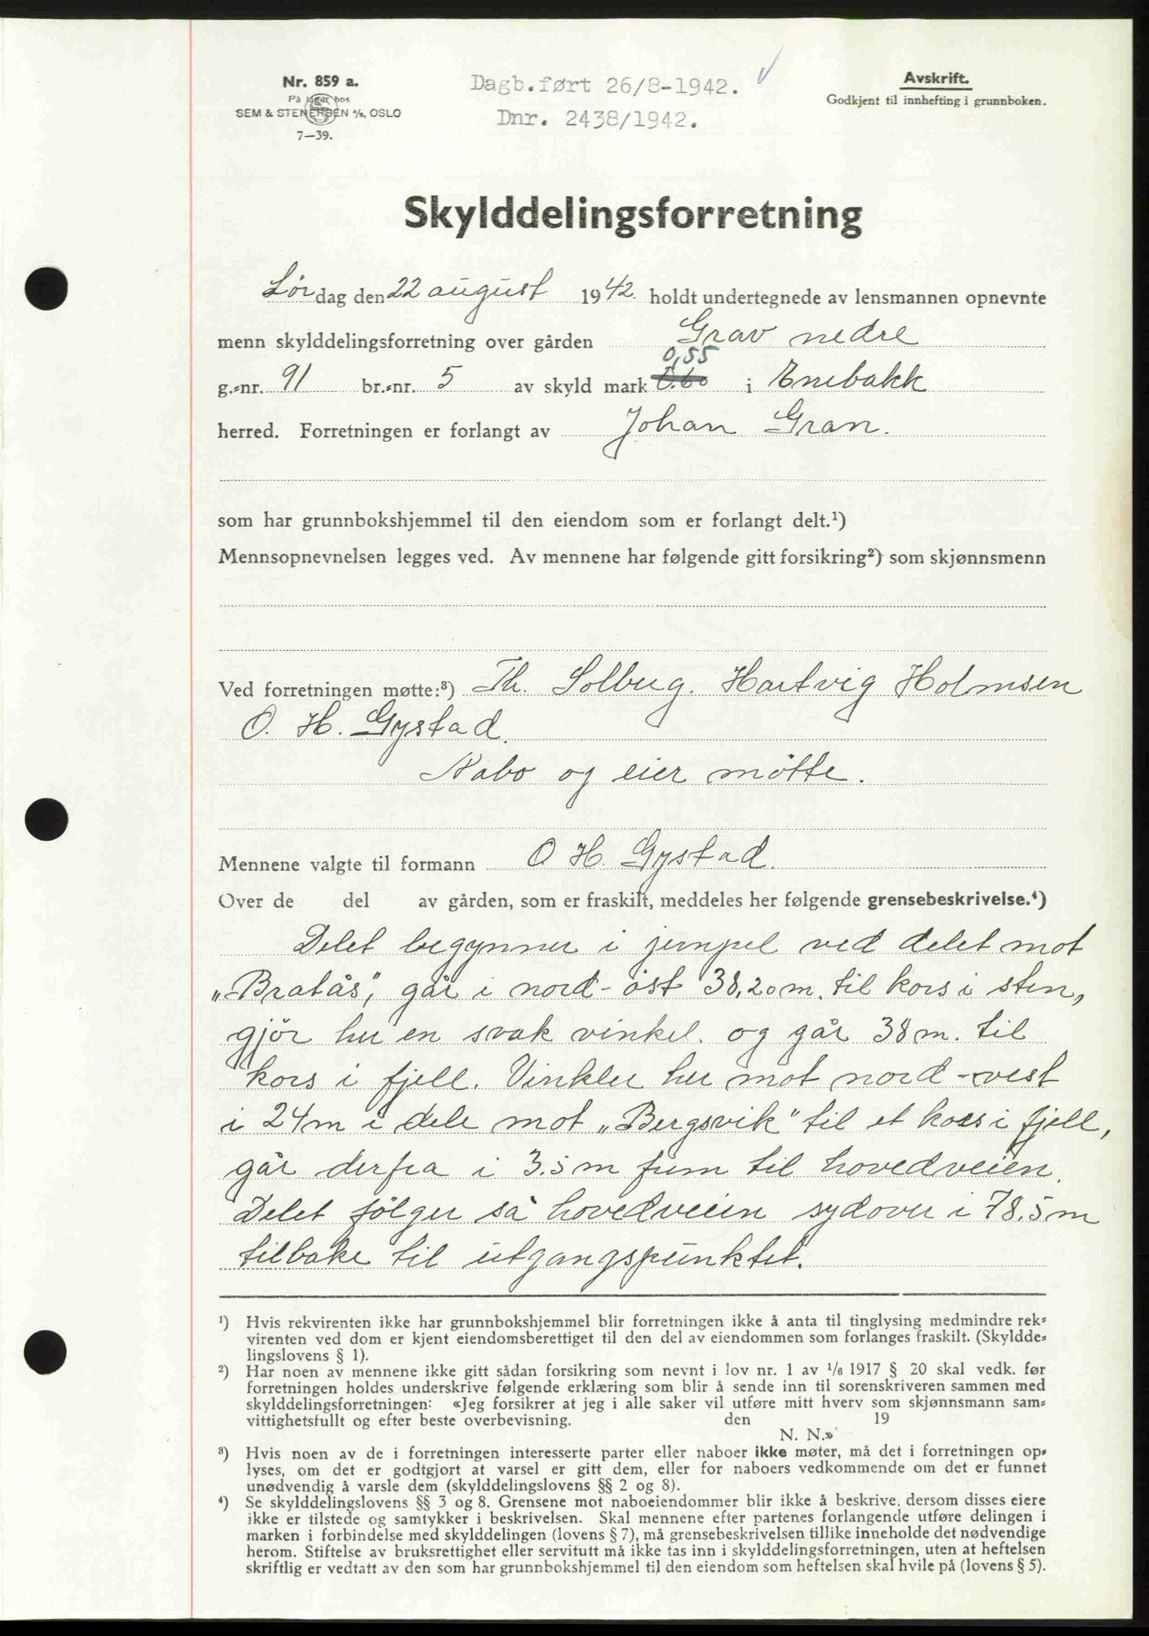 Nr. 859 a.
På lager hos
SEM & STENERSEN A/S, OSLO
7—39.
Dagb.ført 26/8-1942.
Dnr. 2438/1942.
Avskrift.
Godkjent til innhefting i grunnboken.
Skylddelingsforretning
Lørdag den 22 august 1942. holdt undertegnede av lensmannen opnevnte
menn skylddelingsforretning over gården Grav nedre
0,55
g.-nr. 91 br.-nr. 5 av skyld mark 0.60 i Enebakk
herred. Forretningen er forlangt av Johan Gran.
som har grunnbokshjemmel til den eiendom som er forlangt delt.¹)
Mennsopnevnelsen legges ved. Av mennene har følgende gitt forsikring²) som skjønnsmenn
Ved forretningen møtte:³) Th. Solbug. Hartvig Holmsen
O. H. Gystad.
Nabo og eier møtte.
Mennene valgte til formann O H. Gystad.
Over de del av gården, som er fraskilt, meddeles her følgende grensebeskrivelse.⁴)
Delet begynner i jernpel ved delet mot
„Bratås", går i nord-øst 38,20 m. til kors i sten,
gjör her en svak vinkel. og går 38 m. til
kors i fjell. Vinkler her mot nord-vest
i 24 m i dele mot „Bergsvik" til et kors i fjell,
går derfra i 3.5 m frem til hovedveien.
Delet fölger så hovedveien sydover i 78.5 m
tilbake til utgangspunktet.
¹) Hvis rekvirenten ikke har grunnbokshjemmel blir forretningen ikke å anta til tinglysing medmindre rek-
virenten ved dom er kjent eiendomsberettiget til den del av eiendommen som forlanges fraskilt. (Skyldde-
lingslovens § 1).
²) Har noen av mennene ikke gitt sådan forsikring som nevnt i lov nr. 1 av ¹/₆ 1917 § 20 skal vedk. før
forretningen holdes underskrive følgende erklæring som blir å sende inn til sorenskriveren sammen med
skylddelingsforretningen: «Jeg forsikrer at jeg i alle saker vil utføre mitt hverv som skjønnsmann sam-
vittighetsfullt og efter beste overbevisning. den 19
N. N.»
³) Hvis noen av de i forretningen interesserte parter eller naboer ikke møter, må det i forretningen op-
lyses, om det er godtgjort at varsel er gitt dem, eller for naboers vedkommende om det er funnet
unødvendig å varsle dem (skylddelingslovens §§ 2 og 8).
⁴) Se skylddelingslovens §§ 3 og 8. Grensene mot naboeiendommer blir ikke å beskrive, dersom disses eiere
ikke er tilstede og samtykker i beskrivelsen. Skal mennene efter partenes forlangende utføre delingen i
marken i forbindelse med skylddelingen (lovens § 7), må grensebeskrivelsen tillike inneholde det nødvendige
herom. Stiftelse av bruksrettighet eller servitutt må ikke tas inn i skylddelingsforretningen, uten at heftelsen
skriftlig er vedtatt av den som har grunnbokshjemmel til den eiendom som heftelsen skal hvile på (lovens § 5).